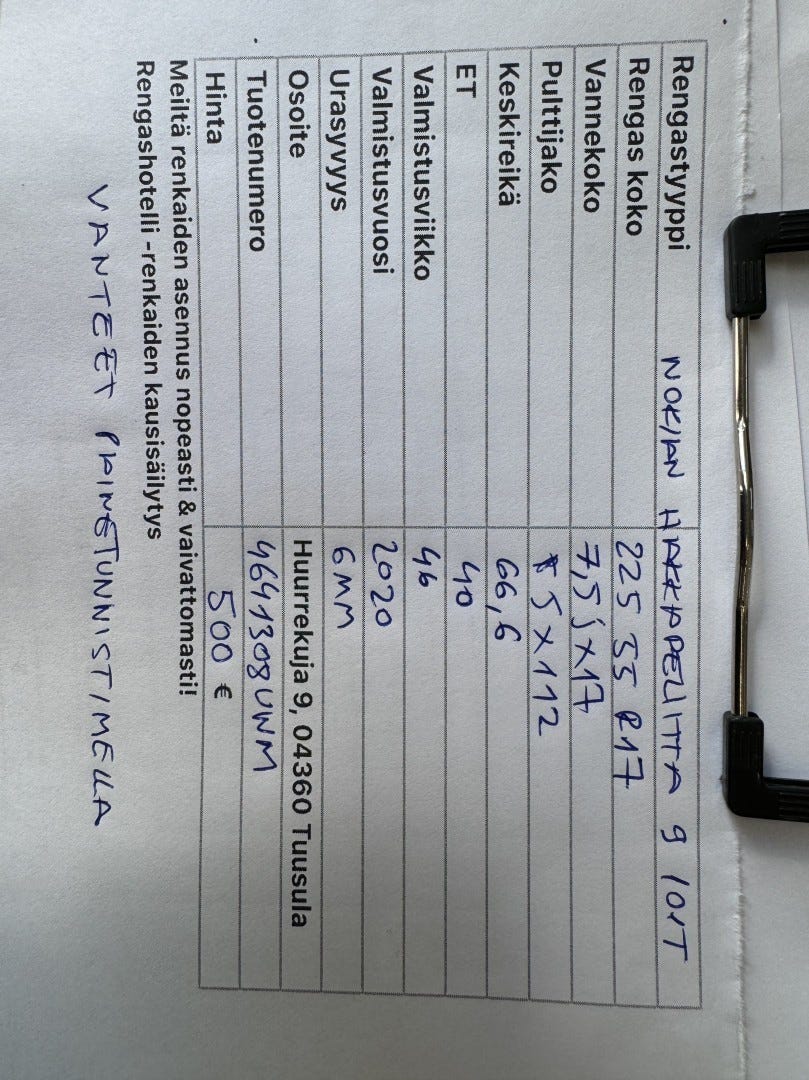 Rengastyyppi NOKIAN HAKKAPELIITTA 9 101T
Rengas koko 225 55 R17
Vannekoko 7,5jx17
Pulttijako 5x112
Keskireikä 66,6
ET 40
Valmistusviikko 46
Valmistusvuosi 2020
Urasyvyys 6MM
Osoite Huurrekuja 9, 04360 Tuusula
Tuotenumero 4641308UWM
Hinta 500 €
Meiltä renkaiden asennus nopeasti & vaivattomasti!
Rengashotelli -renkaiden kausisäilytys
VANTEET PAINETUNNISTIMELLA